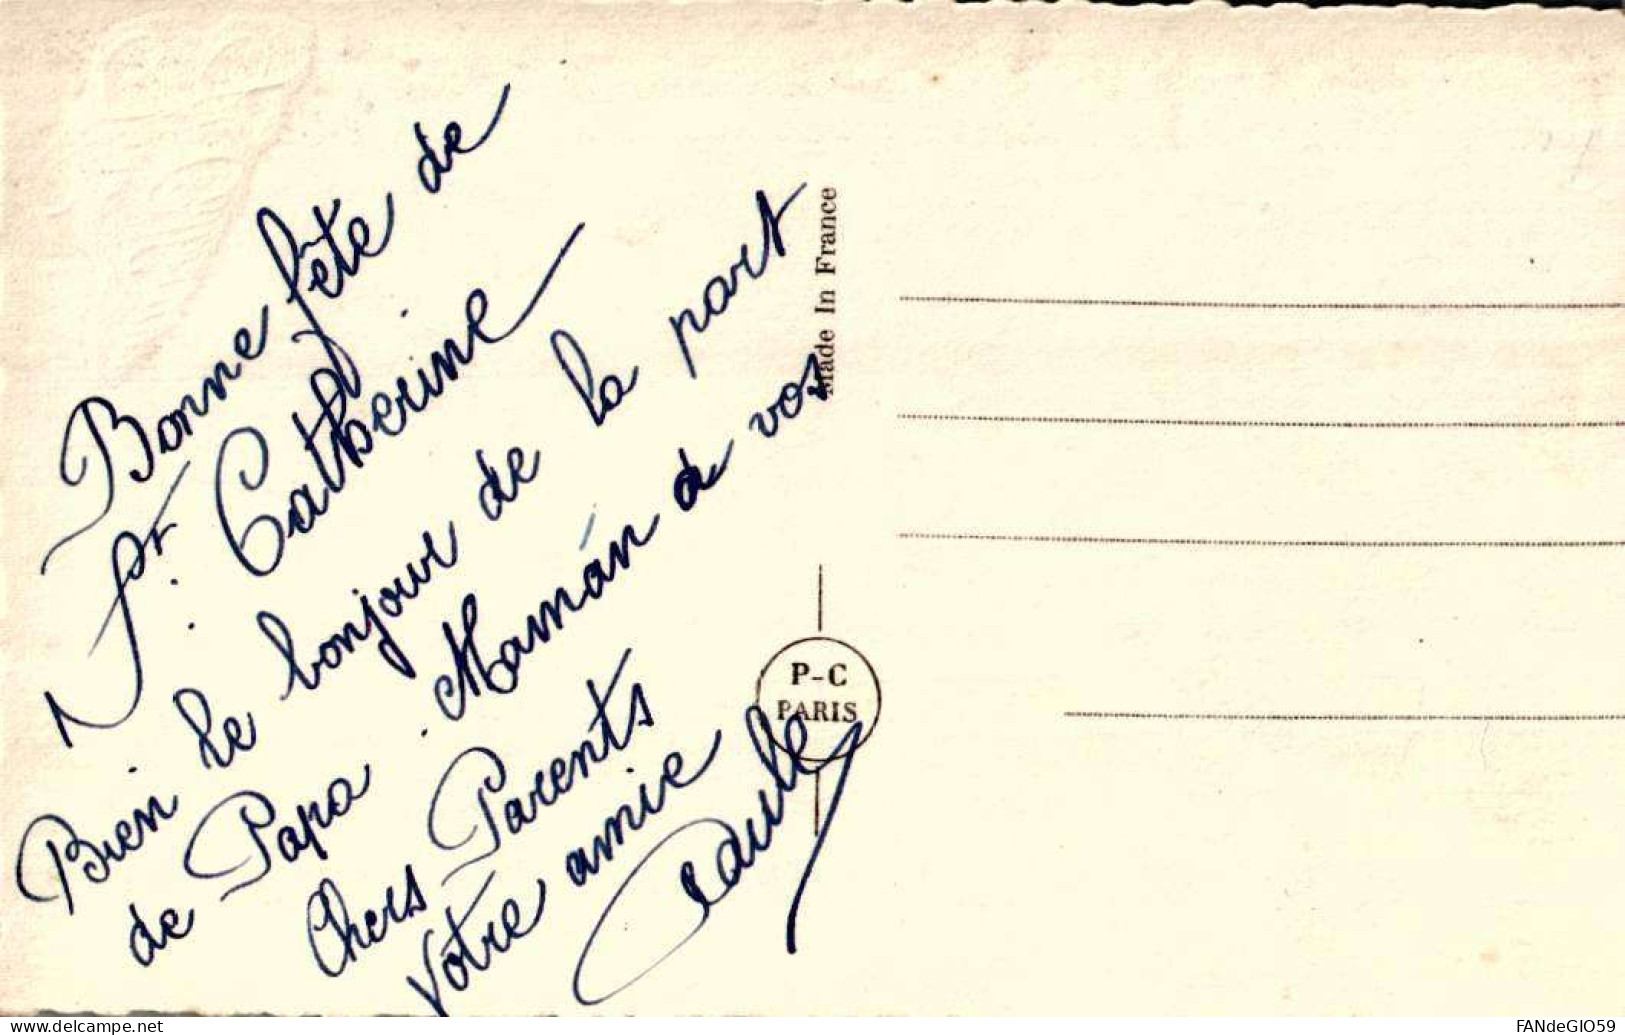 Bonne fête de
St. Catherine
Bien le bonjour de la part
de Papa. Maman à vos
Chers Parents
Votre amie
Paule
Made In France
P-C
PARIS
www.delcampe.net
FANdeGIO59